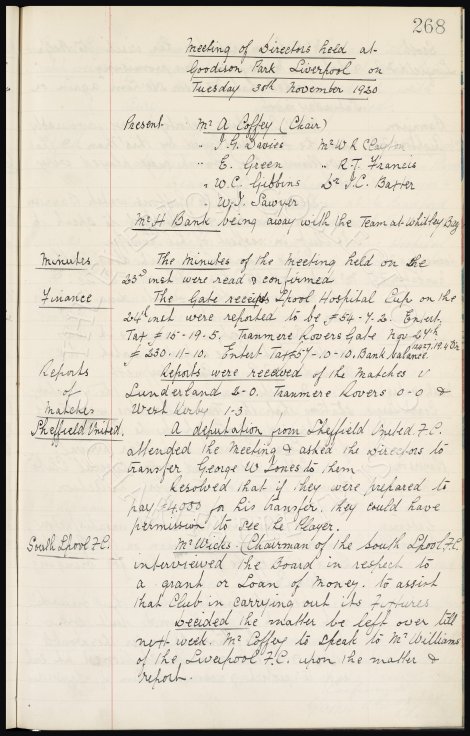 268
Meeting of Directors held at
Goodison Park Liverpool on
Tuesday 30th November 1920
Present Mr A Coffey (Chair)
" J.G. Davies Mr W R Clayton
" E. Green " R.T. Francis
" W.C. Gibbins Dr J.C. Baxter
" W.J. Sawyer
Mr H Bank being away with the Team at Whitley Bay
Minutes The Minutes of the Meeting held on the
23rd inst were read & confirmed
Finance The Gate receipts Lpool Hospital Cup on the
24th inst were reported to be £54-7.2. Entert.
Tax £15-19.5. Tranmere Rovers Gate Nov 27th
£230.11-10. Entert Tax 10-10. Bank balance
Reports Reports were received of the Matches v
of Sunderland 2-0. Tranmere Rovers 0-0 &
Matches West Kirby 1-3
Sheffield United. A deputation from Sheffield United F.C.
attended the Meeting & asked the Directors to
transfer George W Jones to them
Resolved that if they were prepared to
pay £4,000 for his transfer, they could have
permission to see the Player.
South Lpool F.C. Mr Wicks (Chairman of the South Lpool F.C.
interviewed the Board in respect to
a grant or Loan of Money. to assist
that Club in carrying out its Fixtures
Decided the matter be left over till
next week. Mr Coffey to speak to Mr Williams
of the Liverpool F.C. upon the matter &
report.